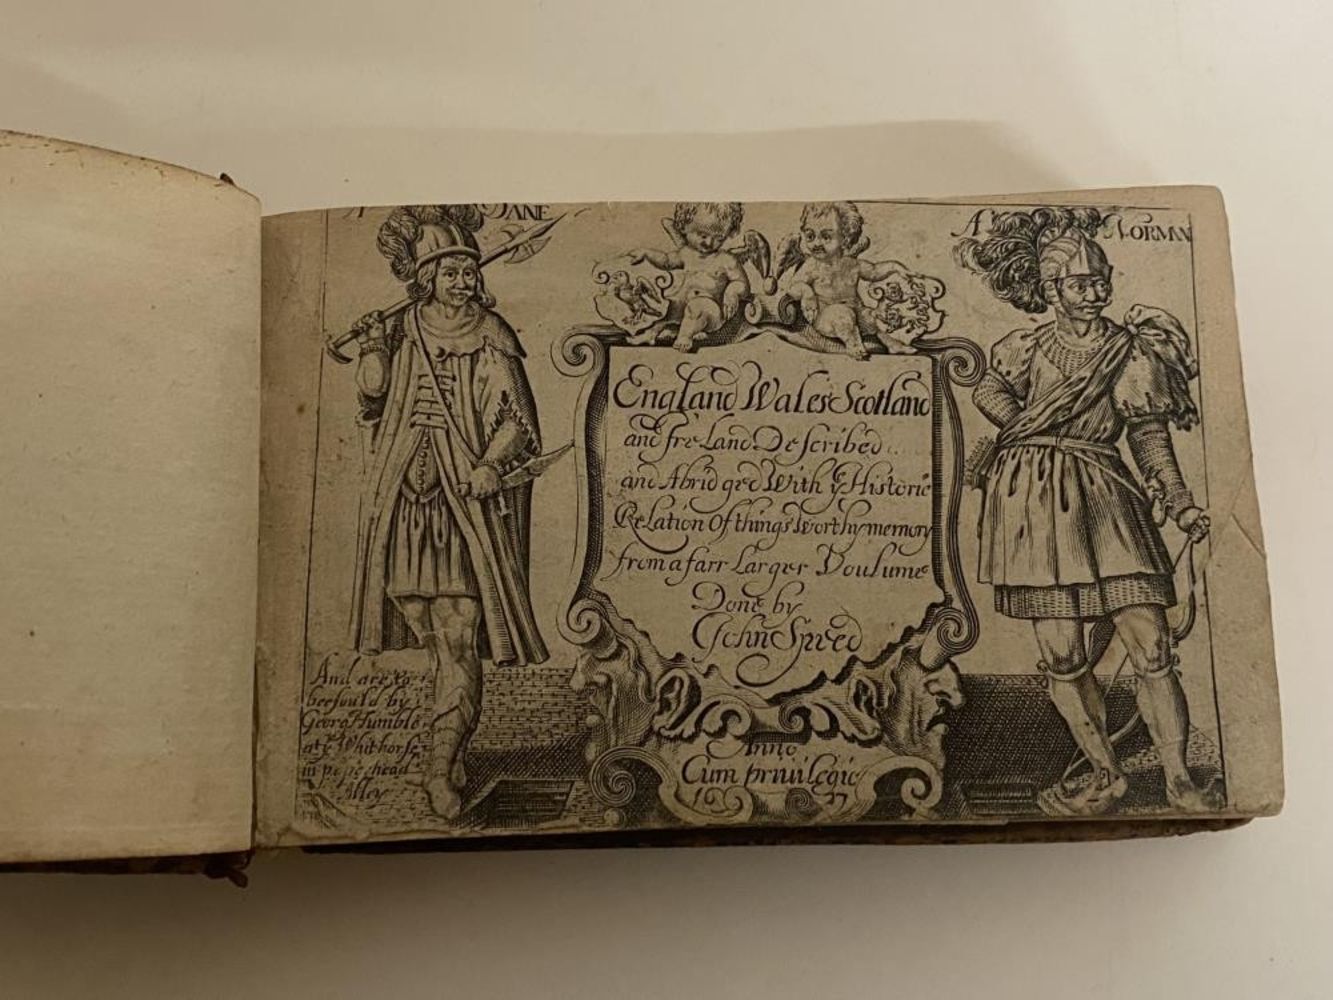 A DANE
A NORMAN
England Wales Scotland
and Ireland Described
and Abridged With yͤ Historic
Relation Of things Worthy memory
from a farr Larger Voulume
Done by
John Speed
And are to
bee sould by
Georg Humble
at yͤ Whithorse
in popeshead
Alley
Anno
Cum priuilegio
1627